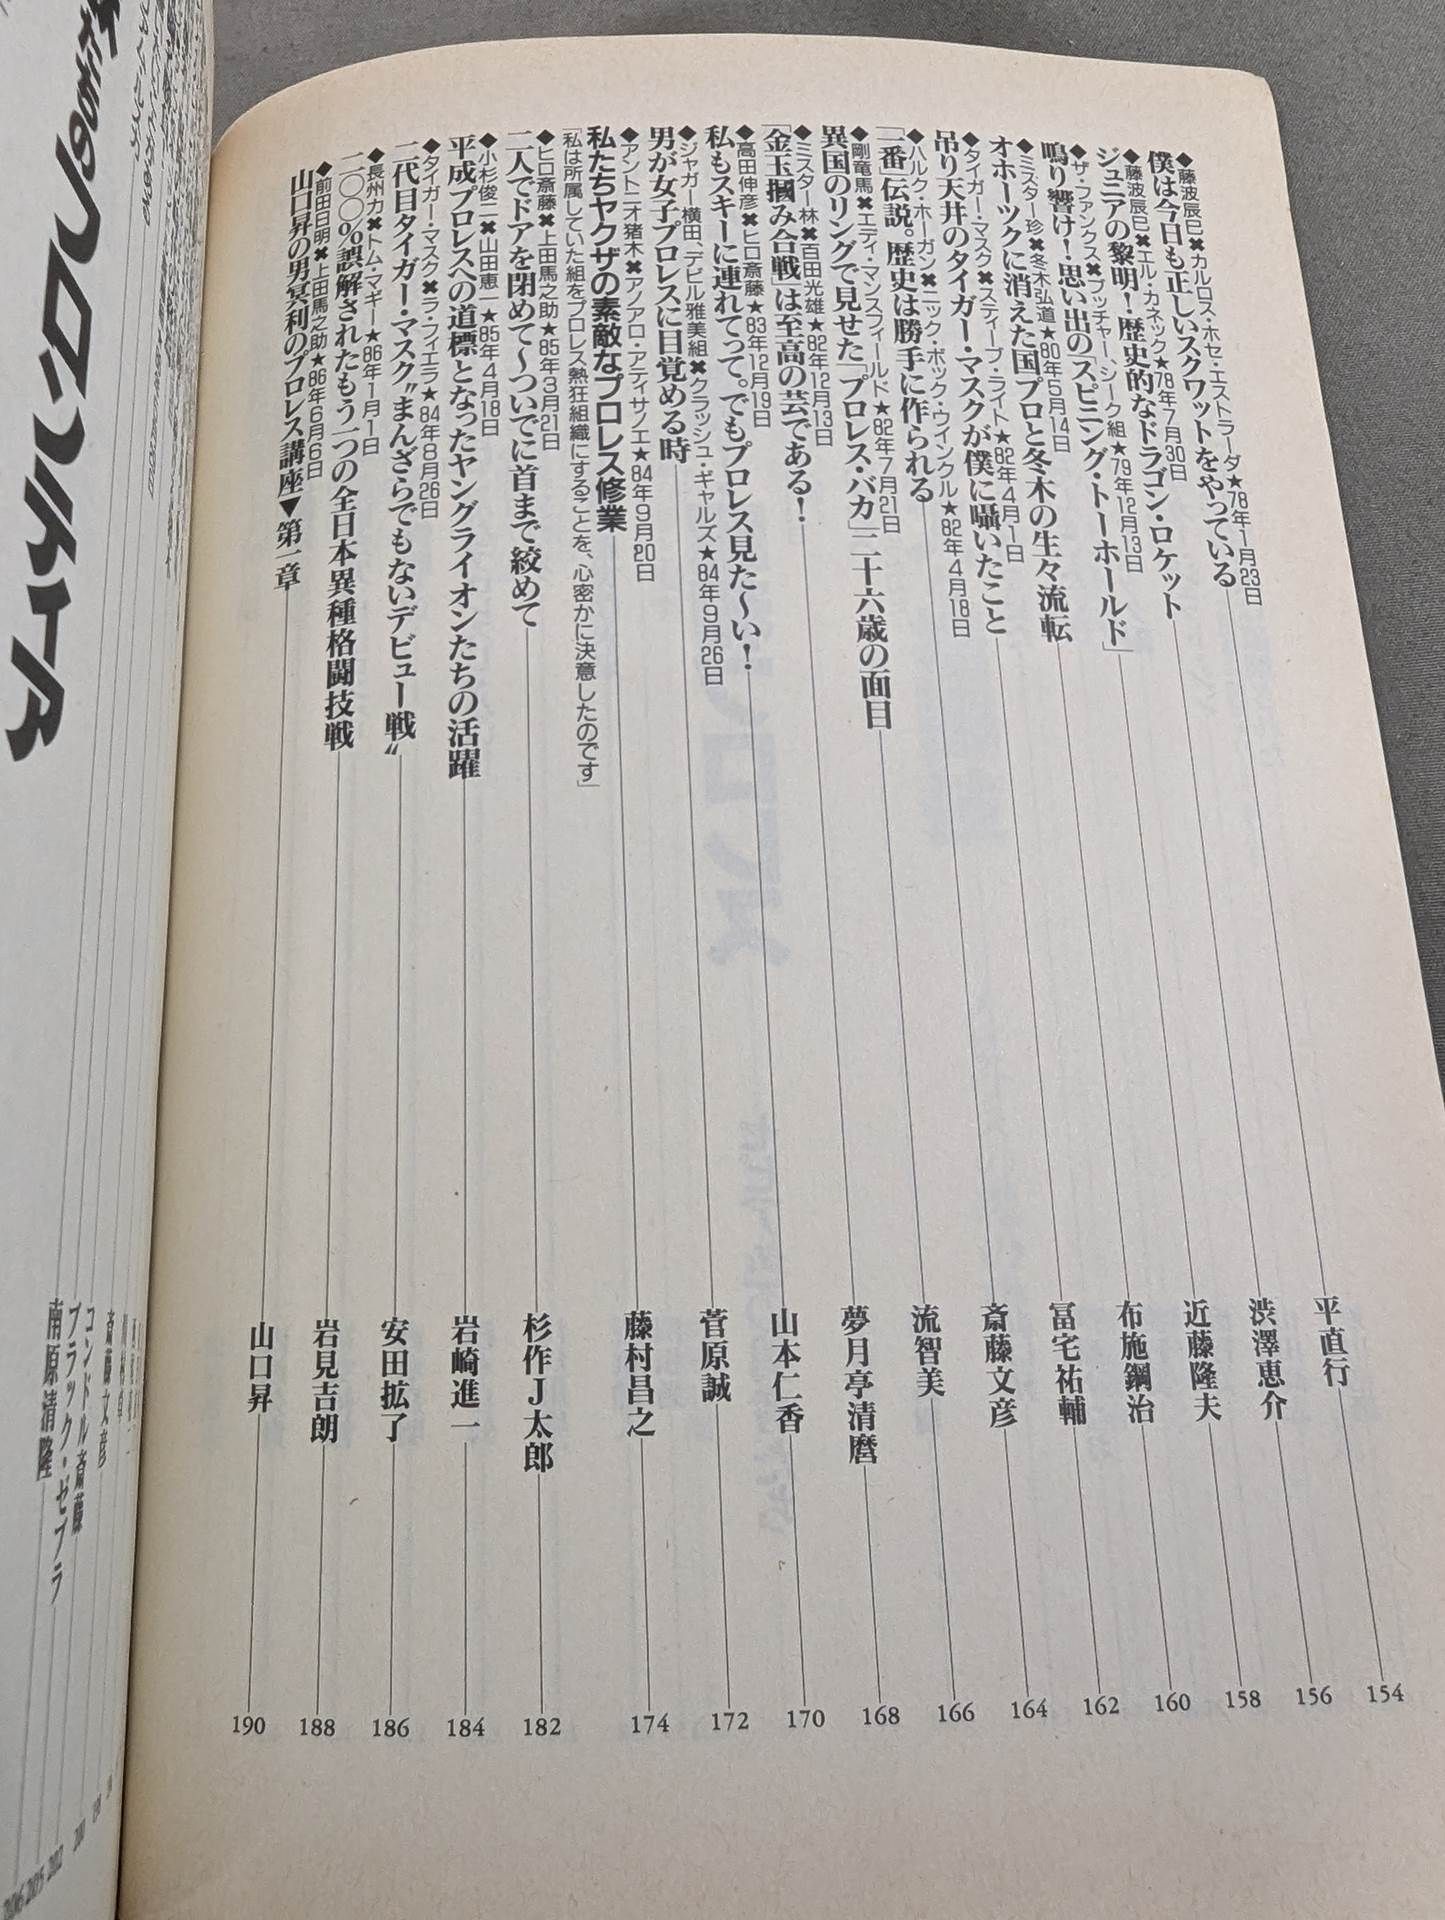 ◆藤波辰巳✖カルロス・ホセ・エストラーダ★78年1月23日
僕は今日も正しいスクワットをやっている 平直行 154
◆藤波辰巳✖エル・カネック★78年7月30日
ジュニアの黎明！歴史的なドラゴン・ロケット 渋澤恵介 156
◆ザ・ファンクス✖ブッチャー、シーク組★79年12月13日
鳴り響け！思い出の「スピニング・トーホールド」 近藤隆夫 158
◆ミスター珍✖冬木弘道★80年5月14日
オホーツクに消えた国プロと冬木の生々流転 布施鋼治 160
◆タイガー・マスク✖スティーブ・ライト★82年4月1日
吊り天井のタイガー・マスクが僕に囁いたこと 冨宅祐輔 162
◆ハルク・ホーガン✖ニック・ボック・ウインクル★82年4月18日
「一番」伝説。歴史は勝手に作られる 斎藤文彦 164
◆剛竜馬✖エディ・マンスフィールド★82年7月21日
異国のリングで見せた「プロレス・バカ」二十六歳の面目 流智美 166
◆ミスター林✖百田光雄★82年12月13日
「金玉摑み合戦」は至高の芸である！ 夢月亭清麿 168
◆高田伸彦✖ヒロ斎藤★83年12月19日
私もスキーに連れてって。でもプロレス見た〜い！ 山本仁香 170
◆ジャガー横田、デビル雅美組✖クラッシュ・ギャルズ★84年9月26日
男が女子プロレスに目覚める時 菅原誠 172
◆アントニオ猪木✖アノアロ・アティサノエ★84年9月20日
私たちヤクザの素敵なプロレス修業 藤村昌之 174
「私は所属していた組をプロレス熱狂組織にすることを、心密かに決意したのです」
◆ヒロ斎藤✖上田馬之助★85年3月21日
二人でドアを閉めて〜ついでに首まで絞めて 杉作J太郎 182
◆小杉俊二✖山田恵一★85年4月18日
平成プロレスへの道標となったヤングライオンたちの活躍 岩崎進一 184
◆タイガー・マスク✖ラ・フィエラ★84年8月26日
二代目タイガー・マスク〝まんざらでもないデビュー戦〟 安田拡了 186
◆長州力✖トム・マギー★86年1月1日
二〇〇％誤解されたもう一つの全日本異種格闘技戦 岩見吉朗 188
◆前田日明✖上田馬之助★86年6月6日
山口昇の男冥利のプロレス講座▼第一章 山口昇 190
斎藤文彦 200
コンドル斎藤 202
ブラック・ゼブラ 205
南原清隆 206